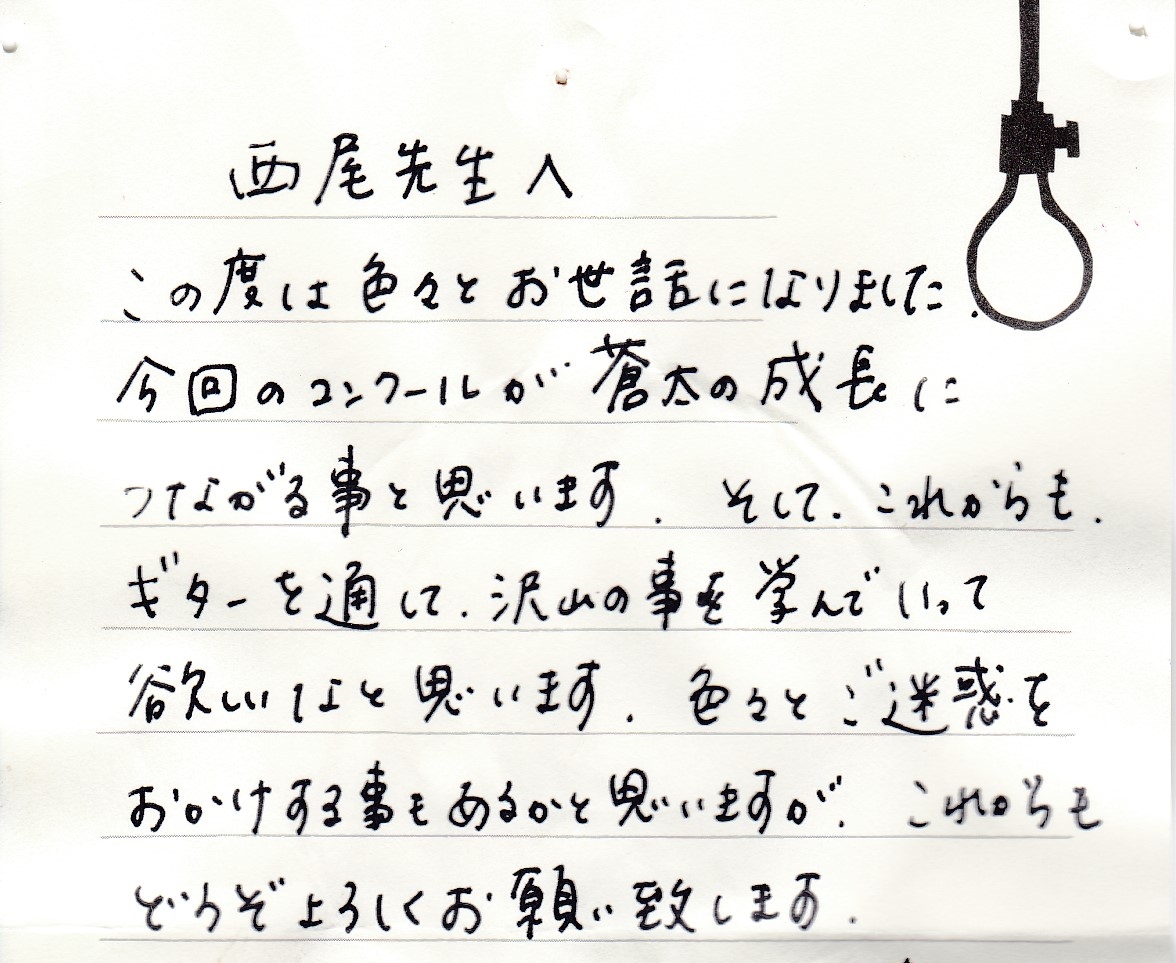 西尾先生へ
この度は色々とお世話になりました.
今回のコンクールが蒼太の成長に
つながる事と思います. そして、これからも、
ギターを通して、沢山の事を学んでいって
欲しいなと思います. 色々とご迷惑を
おかけする事もあるかと思いますが、これからも
どうぞよろしくお願い致します.